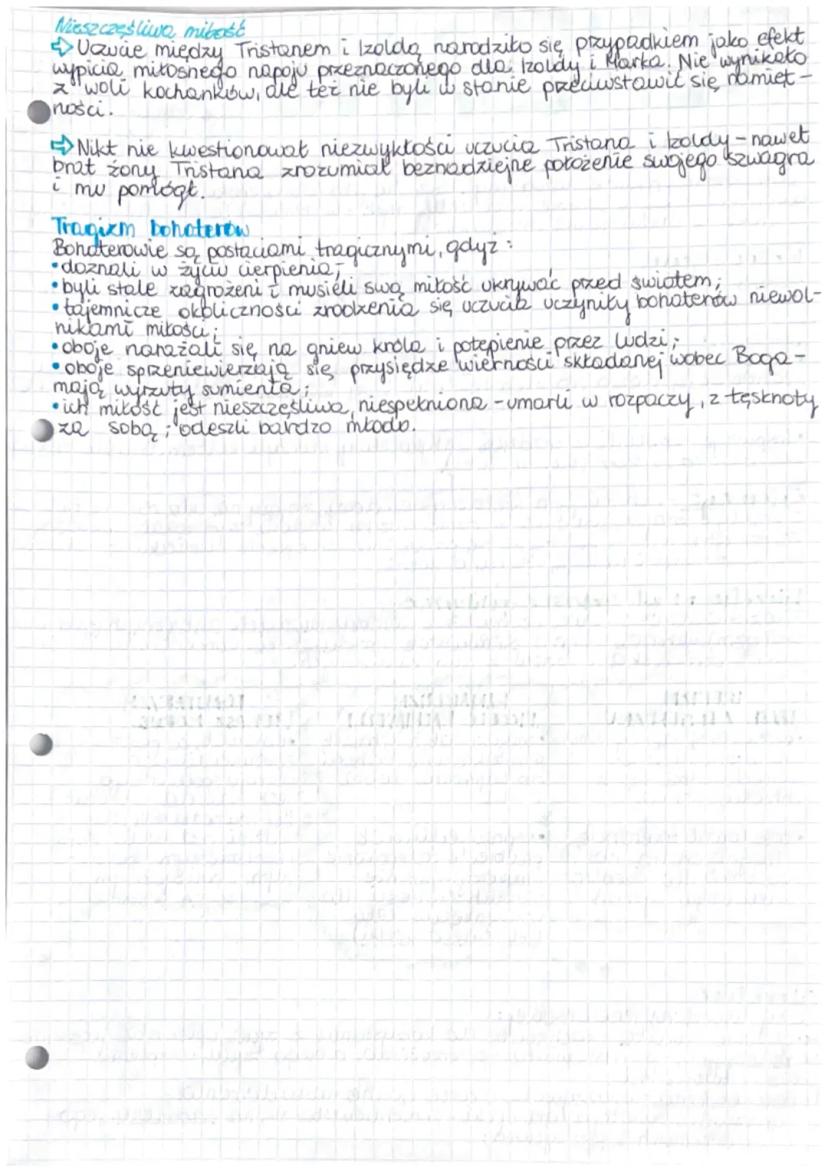 Nieszczęśliwa miłość
⇨ Uczucie między Tristanem i Izoldą narodziło się przypadkiem jako efekt
wypicia miłosnego napoju przeznaczonego dla Izoldy i Marka. Nie wynikało
z woli kochanków, ale też nie byli w stanie przeciwstawić się namięt-
ności.
⇨ Nikt nie kwestionował niezwykłości uczucia Tristana i Izoldy - nawet
brat żony Tristana zrozumiał beznadziejne położenie swojego szwagra
i mu pomógł.
Tragizm bohaterów
Bohaterowie są postaciami tragicznymi, gdyż:
• doznali w życiu cierpienia;
• byli stale zagrożeni i musieli swą miłość ukrywać przed światem;
• tajemnicze okoliczności zrodzenia się uczucia uczyniły bohaterów niewol-
nikami miłości;
• oboje narażali się na gniew króla i potępienie przez ludzi;
• oboje sprzeniewierzają się przysiędze wierności składanej wobec Boga -
mają wyrzuty sumienia;
• ich miłość jest nieszczęśliwa, niespełniona - umarli w rozpaczy, z tęsknoty
za sobą; odeszli bardzo młodo.